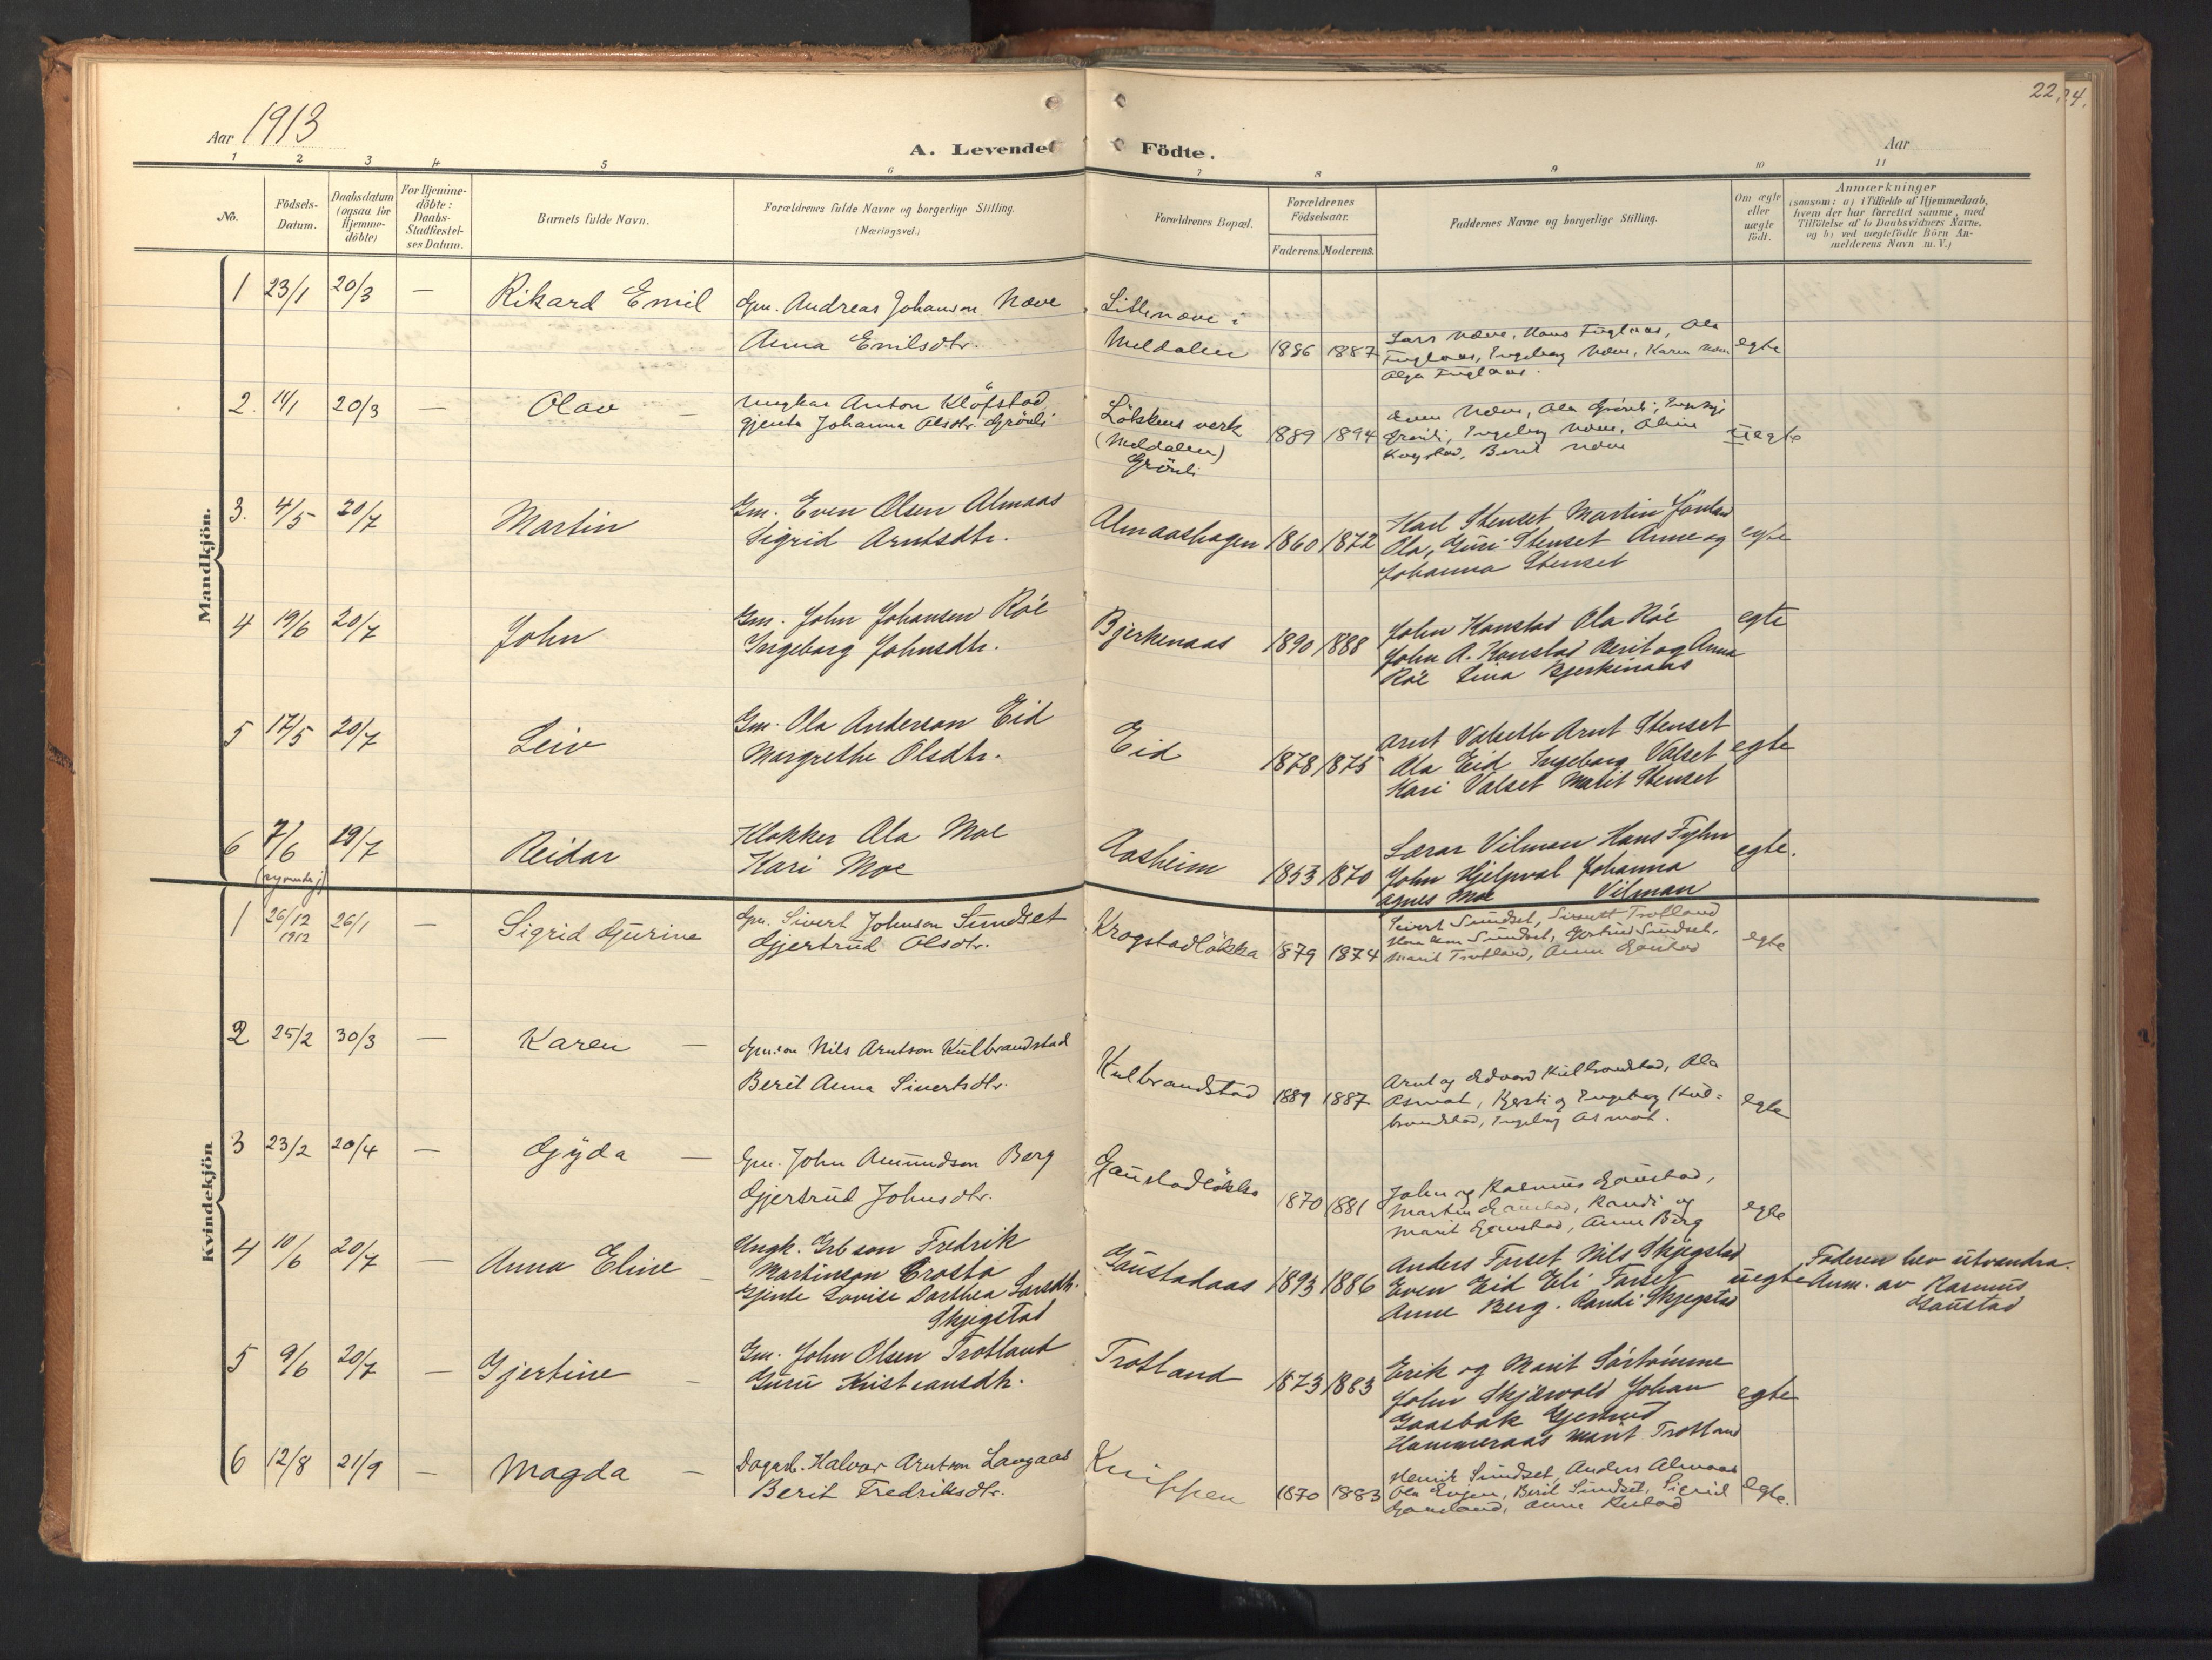 22. 24.
Aar 1913
A. Levendet Födte.
Aar
1 2 3 4 5 6 7 8 9 10 11
No.
Födsels-Datum.
Daabsdatum (ogsaa for Hjemme-döbte)
For Hjemme-döbte: Daabs-Stadfæstel-ses Datum.
Barnets fulde Navn.
Forældrenes fulde Navne og borgerlige Stilling.
(Næringsvei.)
Forældrenes Bopæl.
Forældrenes Födselsaar.
Faderens. Moderens.
Faddernes Navne og borgerlige Stilling.
Om ægte eller uægte födt.
Anmærkninger
(saasom: a) i Tilfælde af Hjemmedaab,
hvem der har forrettet samme, med
Tilföielse af to Daabsvidners Navne.
og b) ved uægtefödte Börn An-
melderens Navn m. V.)
Mandkjön.
1 23/1 20/3 — Rikard Emil
Gm. Andreas Johanson Næve
Anna Emilsdtr.
Litlenæve i
Meldalen 1886 1887
Lars Næve, Hans Fuglaas, Ola
Fuglaas, Ingeborg Næve, Karen
Olga Fuglaas.
egte
2. 14/1 20/3 — Olav —
Ungkar Anton Klöfstad
gjenta Johanna Olsdtr. Grönli
Lökkens verk
(Meldalen)
Grönli
1889 1894
Næve, Ola Grönli,
Grönli, Ingeborg Næve,
Berit Næve
uegte
3. 4/5 20/7 Martin
Gm. Even Olsen Almaas
Sigrid Arntsdtr.
Almaashagen 1860 1872
Karl Stenset Martin
Ola, Guri Stenset Anne og
Johanna Stenset
egte
4 19/6 20/7 John
Gm. John Johansen Röe
Ingeborg Johnsdtr.
Bjerkenaas 1890 1888
John Kanstad Ola Röe
John A. Kanstad Berit og Anna
Röe Lina Bjerkenaas
egte
5 17/5 20/7 Leiv
Gm. Ola Anderson Eid
Margrethe Olsdtr.
Eid 1878 1875
Arnt Valseth Arnt Stenset
Ola Eid Ingeborg Valset
Kari Valset Marit Stenset
egte
6 7/6 19/7 Reidar
Klokker Ola Moe
Kari Moe
Aasheim 1853 1870
Lærar Vilman Hans Fyhn
John Hjelpval Johanna
Agnes Moe Vilman
egte.
Kvindekjön
1 26/12 1912 26/1 — Sigrid Gurine
Gm. Sivert Johnson Sundset
Gjertrud Olsdtr.
Krogstadlökka 1879 1874
Sivert Sundset, Trotland
Sundset, Gjertrud Sundset,
Marit Trotland, Anne Gaustad
egte
2 25/2 30/3 — Karen —
Gm.son Nils Arntson Kulbrandstad
Berit Anna Sivertsdtr.
Kulbrandstad 1889 1887
Arnt og Edvard Kulbrandstad, Ola
Asmat, Kjersti og Ingeborg Kul=
brandstad, Ingeborg Asmat.
egte
3 23/2 20/4 — Gyda —
Gm. John Amundson Berg
Gjertrud Johnsdtr.
Gaustadlökka 1870 1881
John og Rasmus Gaustad,
Martin Gaustad, Randi og
Marit Gaustad, Anne Berg
egte
4 10/6 20/7 — Anna Eline —
Ungk. Grb.son Fredrik
Martinson Grostø
Gjente Lovise Dorthea Larsdtr.
Skjegstad
Gaustadaas 1893 1886
Anders Forset Nils Skjegstad
Even Eid Eli Forset
Anne Berg. Randi Skjegstad
uegte
Faderen hev utvandra.
Anm. av Rasmus
Gaustad
5 9/6 20/7 — Gjertine —
Gm. John Olsen Trotland
Guru Kristiansdtr.
Trotland 1873 1883
Erik og Marit Sörtömme
John Skjærvold Johan
Gaasbak Gjertrud
Hammeraas Marit Trotland
egte
6 12/8 21/9 — Magda —
Dagarb. Halvor Arntson Langaas
Berit Fredriksdtr.
Knippen 1870 1883
Henrik Sundset, Anders Almaas
Ola Berit Sundset, Sigrid
Anne
egte.